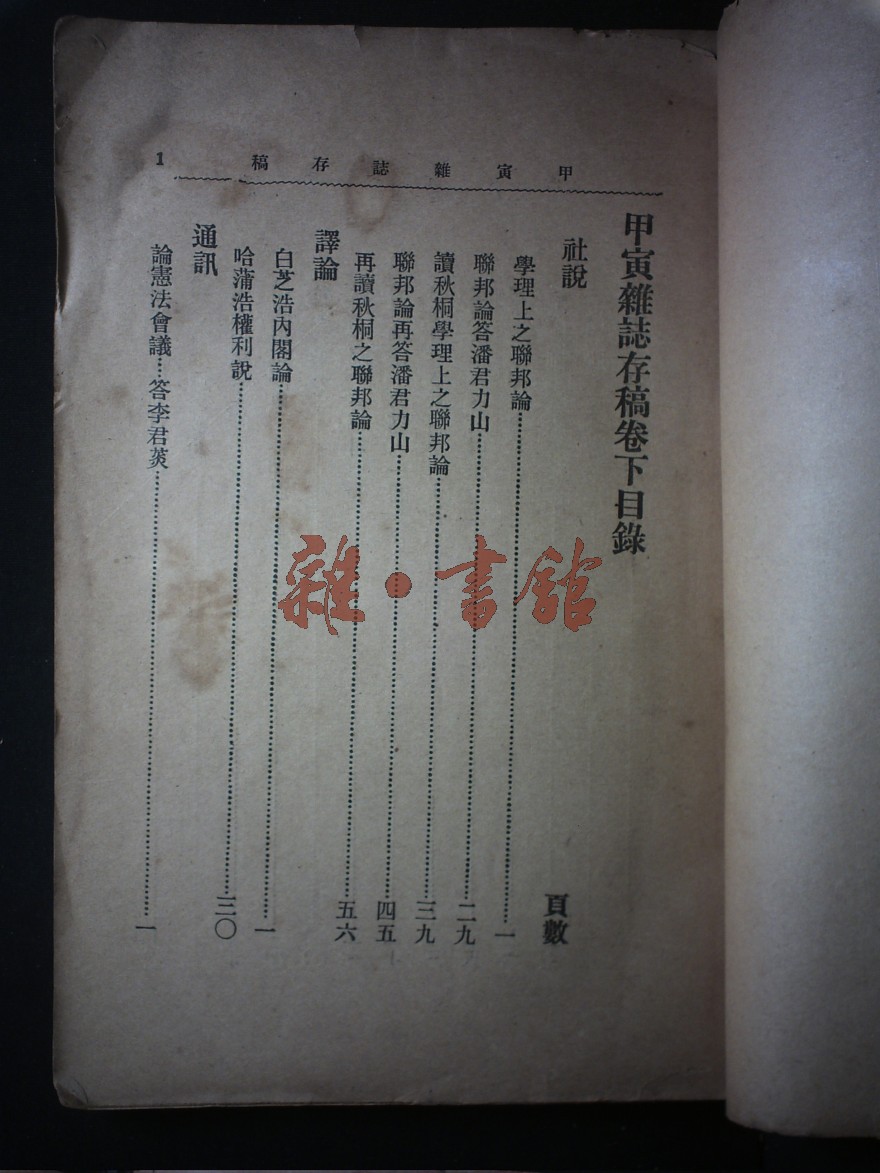 甲寅雜誌存稿 1
甲寅雜誌存稿卷下目錄
社說 頁數
學理上之聯邦論 一
聯邦論答潘君力山 二九
讀秋桐學理上之聯邦論 三九
聯邦論再答潘君力山 四五
再讀秋桐之聯邦論 五六
譯論
白芝浩內閣論 一
哈蒲浩權利說 三〇
通訊
論憲法會議…答李君菼 一
雜·書館